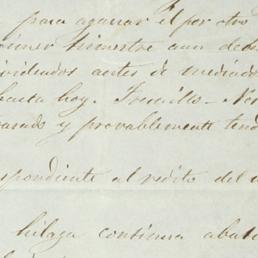 para aguar el por otro
primer bimestre aun debe
dividendos antes de mediado
hasta hoy. Trucillo - No
pasado y provablemente tend
spondiente al rédito del
hilaza continua abat